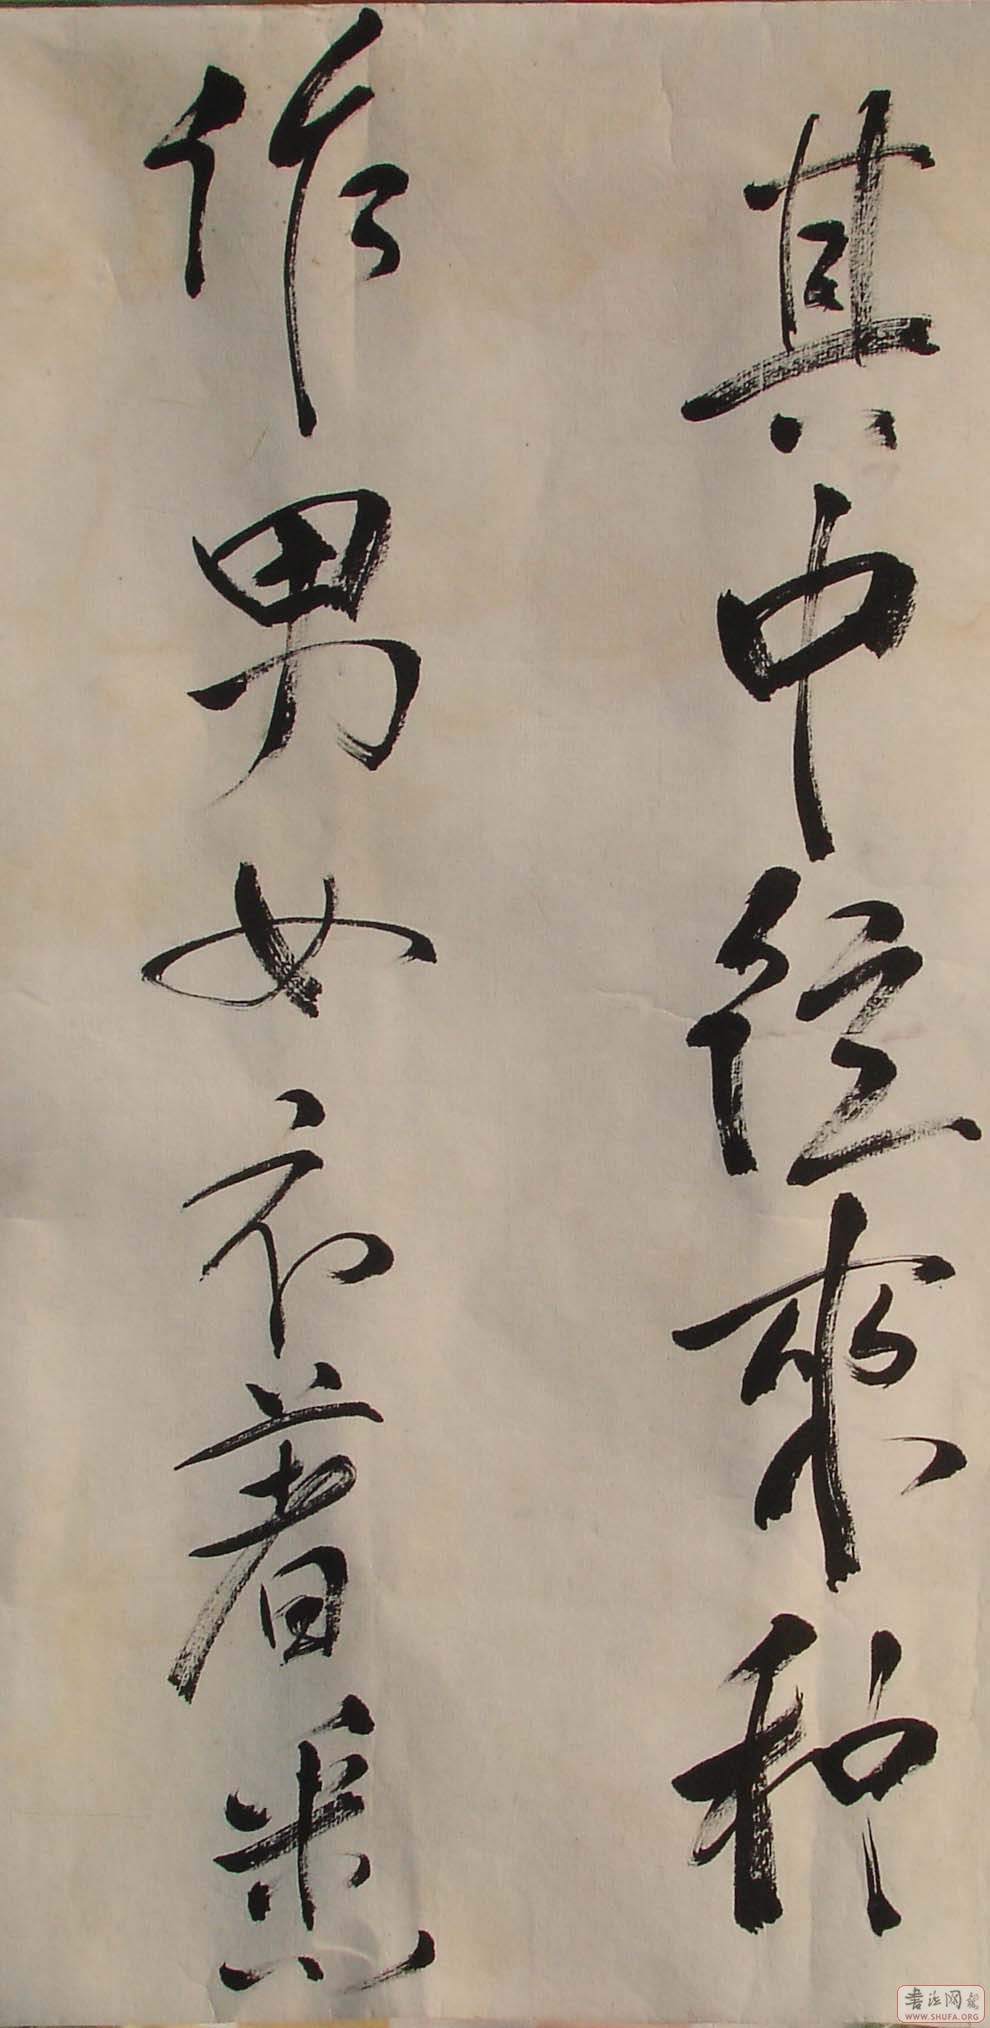 其中往來种
作男女衣著悉
书法网
WWW.SHUFA.ORG